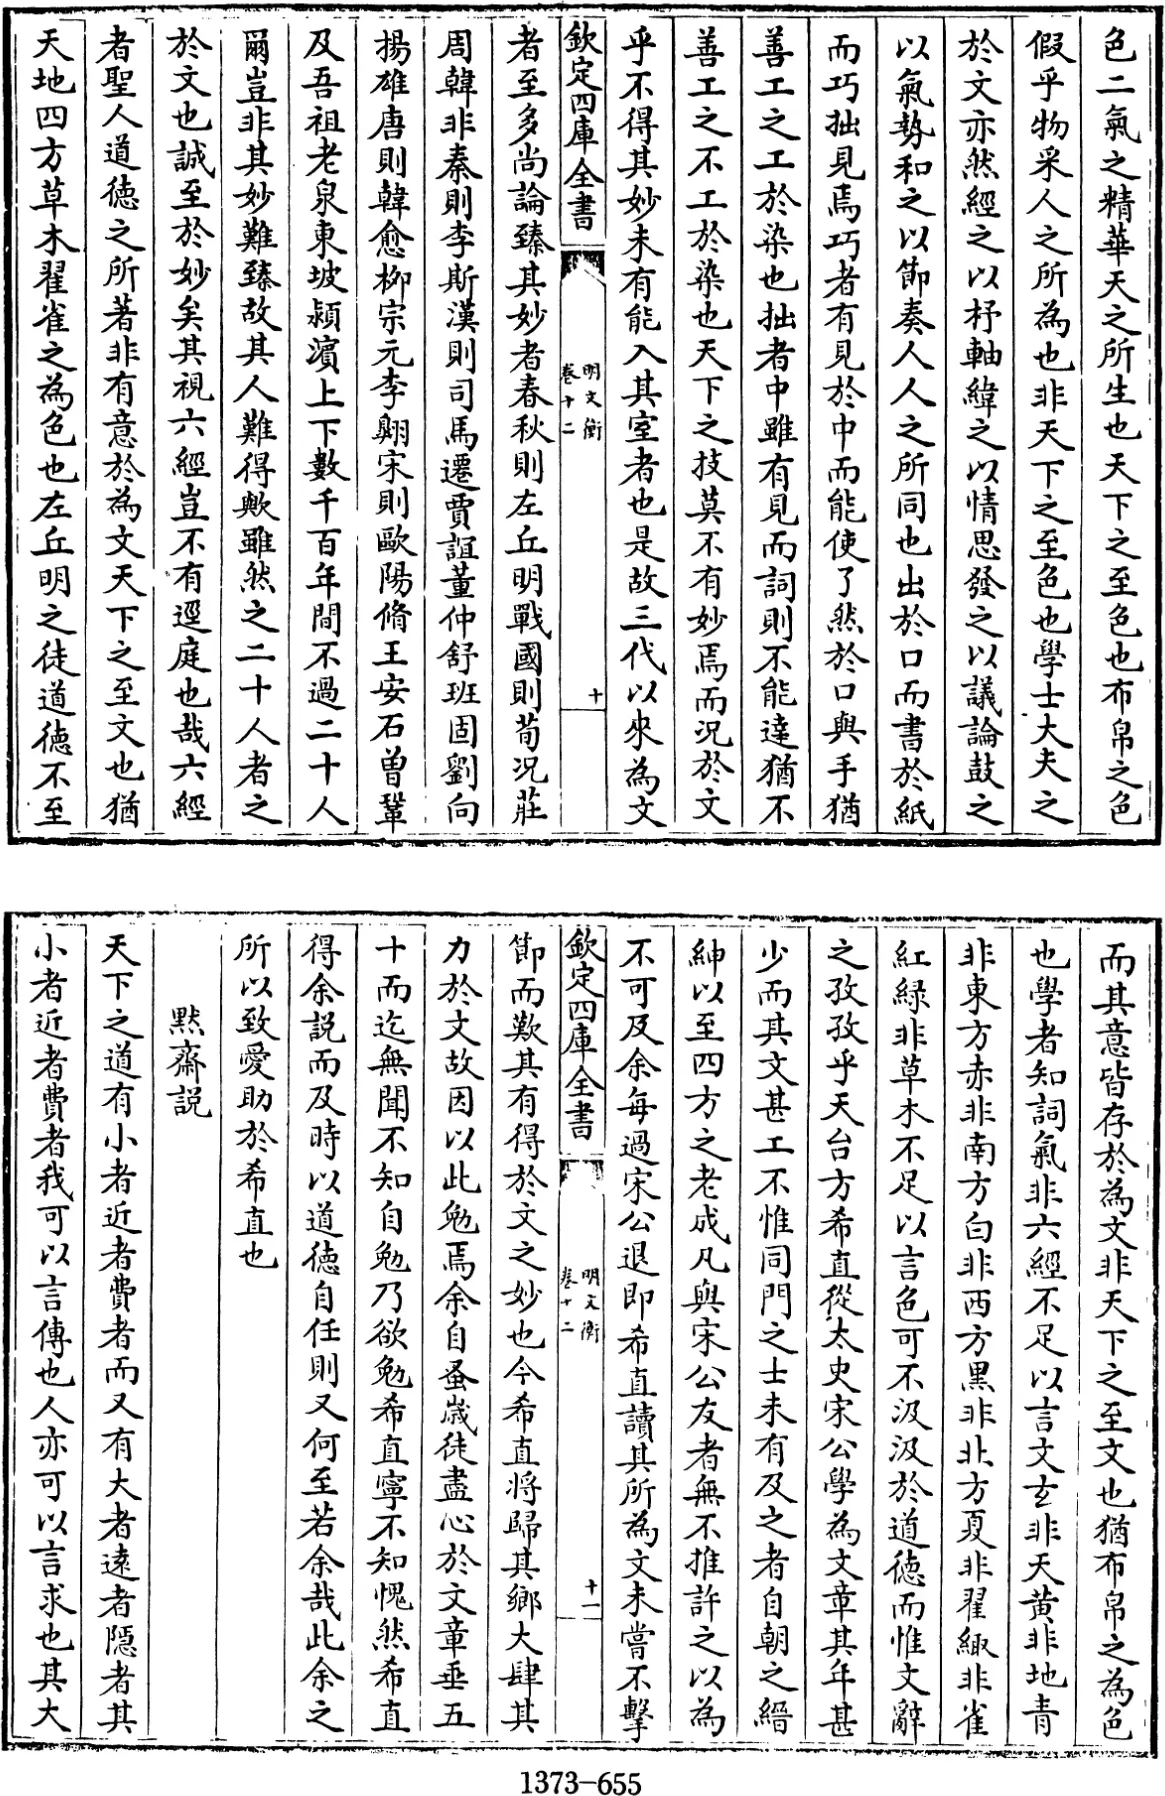 色二氣之精華天之所生也天下之至色也布帛之色
假乎物采人之所為也非天下之至色也學士大夫之
於文亦然經之以杼軸緯之以情思發之以議論鼓之
以氣勢和之以節奏人人之所同也出於口而書於紙
而巧拙見焉巧者有見於中而能使了然於口與手猶
善工之工於染也拙者中雖有見而詞則不能達猶不
善工之不工於染也天下之技莫不有妙焉而況於文
乎不得其妙未有能入其室者也是故三代以來為文
欽定四庫全書
明文衡
卷十二
十
者至多尚論臻其妙者春秋則左丘明戰國則荀況莊
周韓非秦則李斯漢則司馬遷賈誼董仲舒班固劉向
揚雄唐則韓愈栁宗元李翺宋則歐陽脩王安石曽鞏
及吾祖老泉東坡潁濵上下數千百年間不過二十人
爾豈非其妙難臻故其人難得歟雖然之二十人者之
於文也誠至於妙矣其視六經豈不有逕庭也哉六經
者聖人道徳之所著非有意於為文天下之至文也猶
天地四方草木翟雀之為色也左丘明之徒道徳不至
而其意皆存於為文非天下之至文也猶布帛之為色
也學者知詞氣非六經不足以言文玄非天黄非地青
非東方赤非南方白非西方黒非北方夏非翟緅非雀
紅緑非草木不足以言色可不汲汲於道徳而惟文辭
之孜孜乎天台方希直從太史宋公學為文章其年甚
少而其文甚工不惟同門之士未有及之者自朝之縉
紳以至四方之老成凡與宋公友者無不推許之以為
不可及余每過宋公退即希直讀其所為文未嘗不擊
欽定四庫全書
明文衡
卷十二
十一
節而歎其有得於文之妙也今希直将歸其鄉大肆其
力於文故因以此勉焉余自蚤嵗徒盡心於文章垂五
十而迄無聞不知自勉乃欲勉希直寧不知愧然希直
得余説而及時以道徳自任則又何至若余哉此余之
所以致愛助於希直也
黙齋説
天下之道有小者近者費者而又有大者逺者隠者其
小者近者費者我可以言傳也人亦可以言求也其大
1373-655